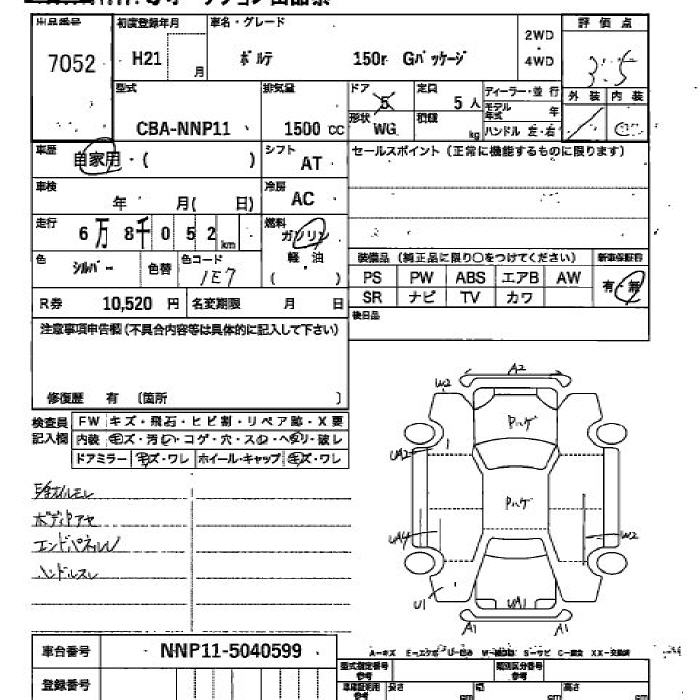 出品番号 初度登録年月 車名・グレード 評価点
7052 H21 月 ポルテ 150r Gパッケージ 2WD・4WD 3.5
外装 内装
型式 排気量 ドア 定員 ディーラー・並行
CBA-NNP11 1500 CC 5 5人 モデル年式 年
形状 WG 積載 kg ハンドル 左・右 C
車歴 自家用・( ) シフト AT セールスポイント (正常に機能するものに限ります)
車検 年 月( 日) 冷房 AC
走行 6万8千052km 燃料 ガソリン
軽・油
( )
色 シルバー 色替 色コード 1E7
装備品 (純正品に限り○をつけてください) 新車保証書
PS PW ABS エアB AW 有・無
SR ナビ TV カワ
R券 10,520 円 名変期限 月 日
後日品
注意事項申告欄(不具合内容等は具体的に記入して下さい)
修復歴 有 〔箇所 〕
検査員記入欄 FW キズ・飛石・ヒビ割・リペア跡・X要
内装 キズ・汚い・コゲ・穴・スレ・ヘタリ・破レ
ドアミラー キズ・ワレ ホイール・キャップ キズ・ワレ
ボディアセ
エンドパネルU
ハンドルスレ
A2
W2
Pハゲ
UA2
Pハゲ
UA4
W2
U1
UA1
A1 A1
車台番号 NNP11-5040599
登録番号
A-キズ E-エクボ U-凹み W-補修跡 S-サビ C-腐食 XX-交換済
型式指定番号 参考 類別区分番号 参考
長さ cm 幅 cm 高さ